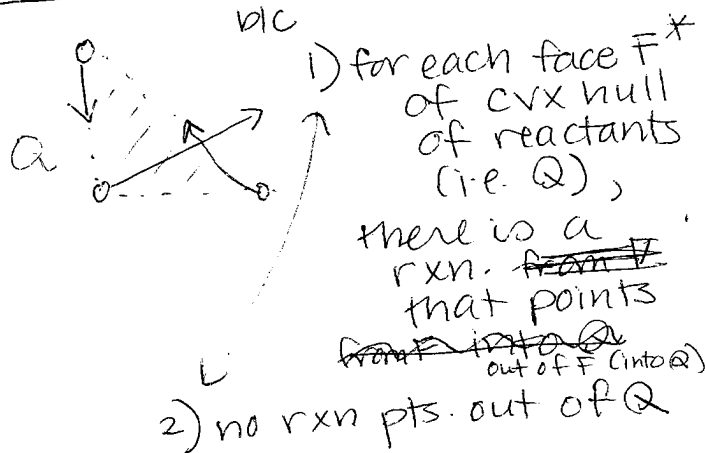 b/c
1) for each face F*
of cvx hull
of reactants
(i.e. Q),
there is a
rxn. from V
that points
from F into Q
out of F (into Q)
2) no rxn pts. out of Q
Q